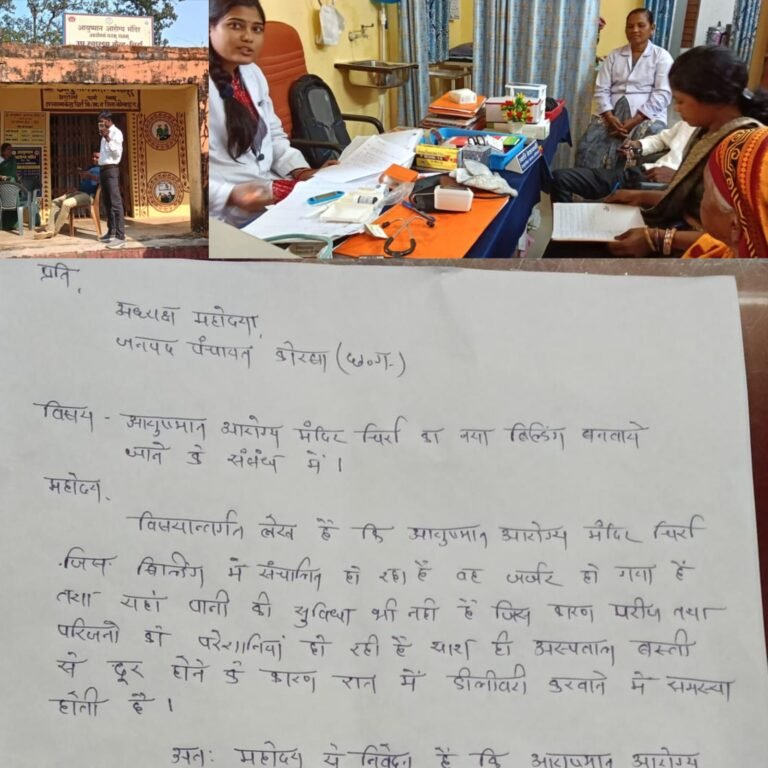 आयुष्मान आरोग्य मंदिर
प्रति,
अध्यक्ष महोदया,
जनपद पंचायत कोरबा (छ०ग०)
विषय - आयुष्मान आरोग्य मंदिर चिर्रा का नया बिल्डिंग बनवाये
जाने के संबंध में ।
महोदय,
विषयान्तर्गत लेख है कि आयुष्मान आरोग्य मंदिर चिर्रा
जिस बिल्डिंग में संचालित हो रहा है वह जर्जर हो गया है
तथा यहां पानी की सुविधा भी नही है जिस कारण मरीज तथा
परिजनो को परेशानियां हो रही है साथ ही अस्पताल बस्ती
से दूर होने के कारण रात में डीलीवरी करवाने में समस्या
होती है ।
अतः महोदय से निवेदन है कि आयुष्मान आरोग्य